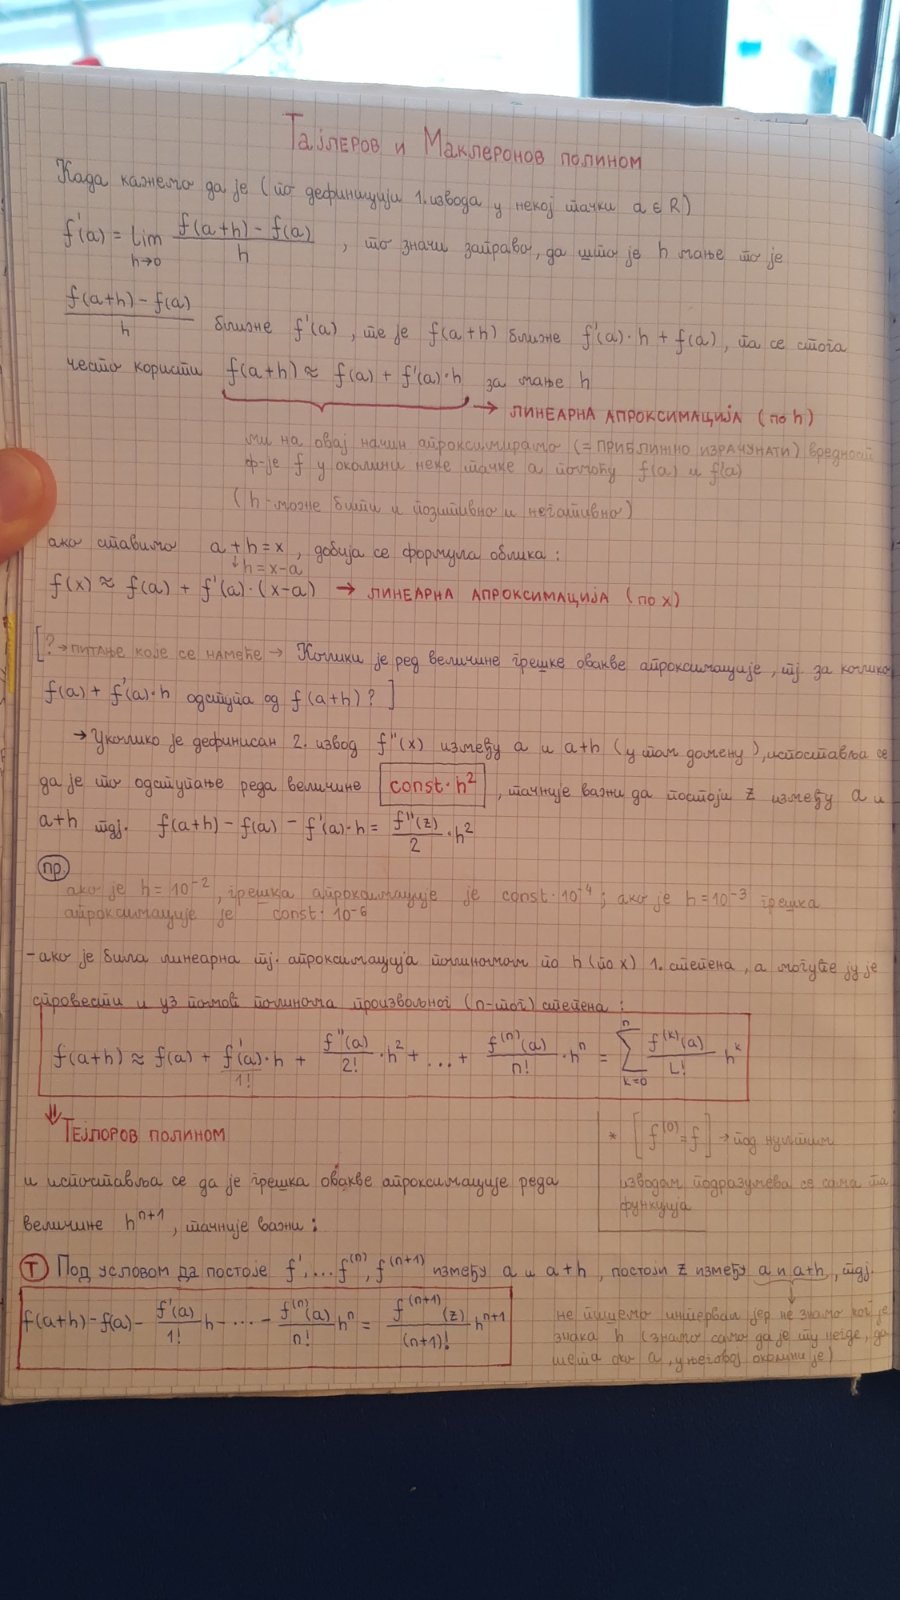 Тајлеров и Маклеронов полином
Када кажемо да је (по дефиницији 1. извода у некој тачки a ∈ R)
f'(a) = lim h→0 (f(a+h) - f(a))/h , то значи заправо, да што је h мање то је
(f(a+h) - f(a))/h ближе f'(a), те је f(a+h) ближе f'(a)·h + f(a), па се стога
често користи f(a+h) ≈ f(a) + f'(a)·h за мање h
→ ЛИНЕАРНА АПРОКСИМАЦИЈА (по h)
ми на овај начин апроксимирамо (= ПРИБЛИЖНО ИЗРАЧУНАТИ) вредност
ф-је f у околини неке тачке a помоћу f(a) и f'(a)
(h - може бити и позитивно и негативно)
ако ставимо a + h = x, добија се формула облика:
↓ h = x-a
f(x) ≈ f(a) + f'(a)·(x-a) → ЛИНЕАРНА АПРОКСИМАЦИЈА (по x)
[? → ПИТАЊЕ КОЈЕ СЕ НАМЕЋЕ → Колики је ред величине грешке овакве апроксимације, тј. за колико
f(a) + f'(a)·h одступа од f(a+h)? ]
→ Уколико је дефинисан 2. извод f''(x) између a и a+h (у том домену), испоставља се
да је то одступање реда величине const·h², тачније важи да постоји z између a и
a+h тдј. f(a+h) - f(a) - f'(a)·h = f''(z)/2 · h²
пр.
ако је h = 10⁻², грешка апроксимације је const·10⁻⁴; ако је h = 10⁻³ грешка
апроксимације је const·10⁻⁶
- ако је била линеарна тј. апроксимација полиномом по h (по x) 1. степена, а могуће ју је
спровести и уз помоћ полинома произвољног (n-тог) степена:
f(a+h) ≈ f(a) + f'(a)/1! ·h + f''(a)/2! ·h² + ... + f⁽ⁿ⁾(a)/n! ·hⁿ = ∑ k=0 n f⁽ᵏ⁾(a)/L! hᵏ
⇓ ТЕЈЛОРОВ ПОЛИНОМ
* [f⁽⁰⁾ = f] → под нултим
изводом подразумева се сама та
функција
и испоставља се да је грешка овакве апроксимације реда
величине hⁿ⁺¹, тачније важи:
Т Под условом да постоје f', ... f⁽ⁿ⁾, f⁽ⁿ⁺¹⁾ између a и a+h, постоји z између a и a+h, тдј.
f(a+h) - f(a) - f'(a)/1! h - ... - f⁽ⁿ⁾(a)/n! hⁿ = f⁽ⁿ⁺¹⁾(z)/(n+1)! hⁿ⁺¹
не пишемо интервал јер не знамо ког је
знака h (знамо само да је ту негде, да
шета око a, у његовој околини је)